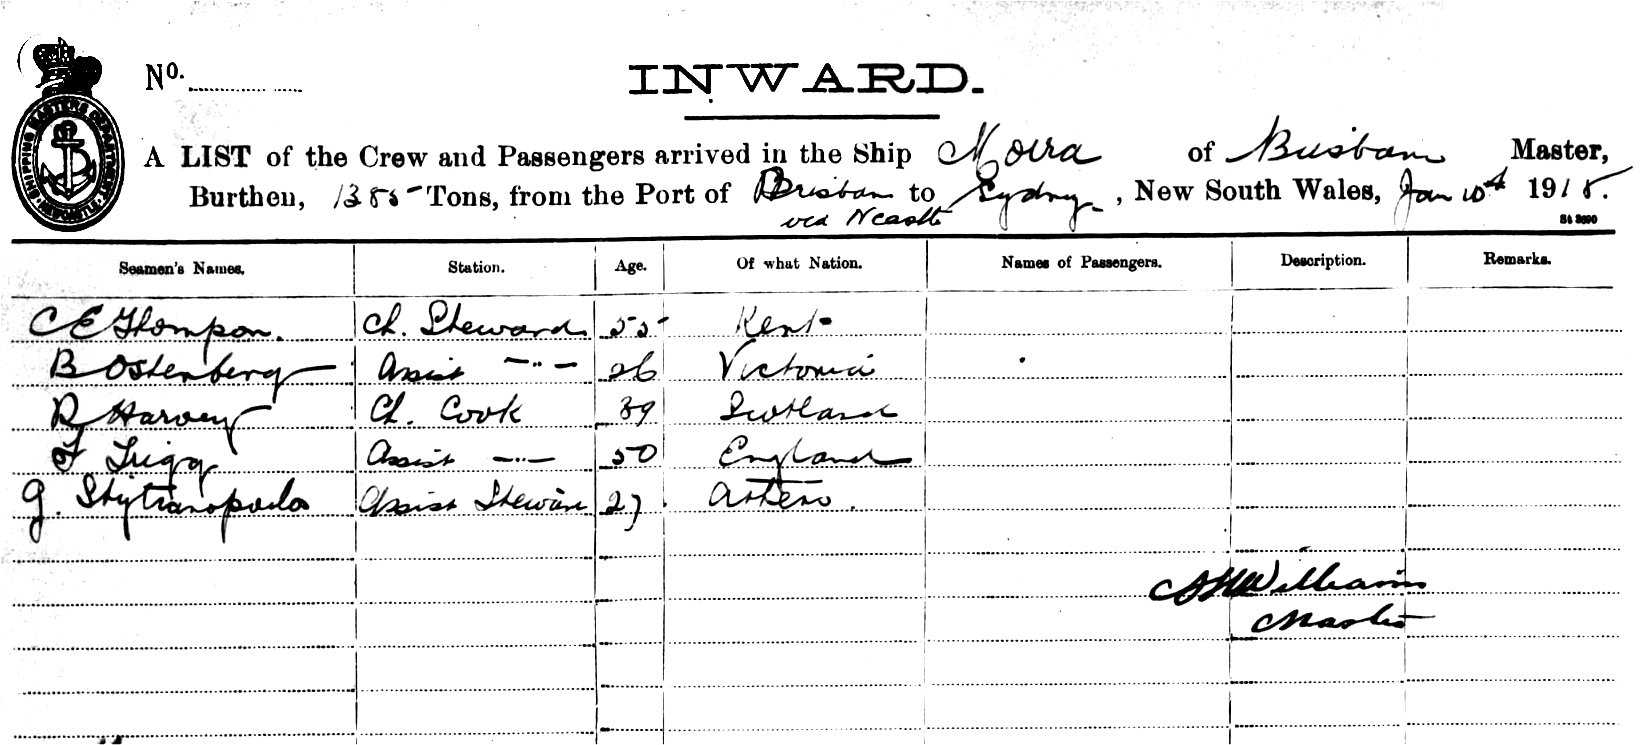 SHIPPING MASTERS DEPARTMENT NEWCASTLE
No.
INWARD.
A LIST of the Crew and Passengers arrived in the Ship Moira of Brisbane Master,
Burthen, 1385 Tons, from the Port of Brisbane to Sydney, New South Wales, Jan 10th 1918.
via Ncastle
St 3690
Seamen's Names. Station. Age. Of what Nation. Names of Passengers. Description. Remarks.
C E Thompson. Ch. Steward 55 Kent
B Ostenberg Assist —"— 26 Victoria
R Harvey Ch. Cook 39 Scotland
F Trigg Assist —"— 50 England
G. Assist Steward 27 Athens.
Williams
Master